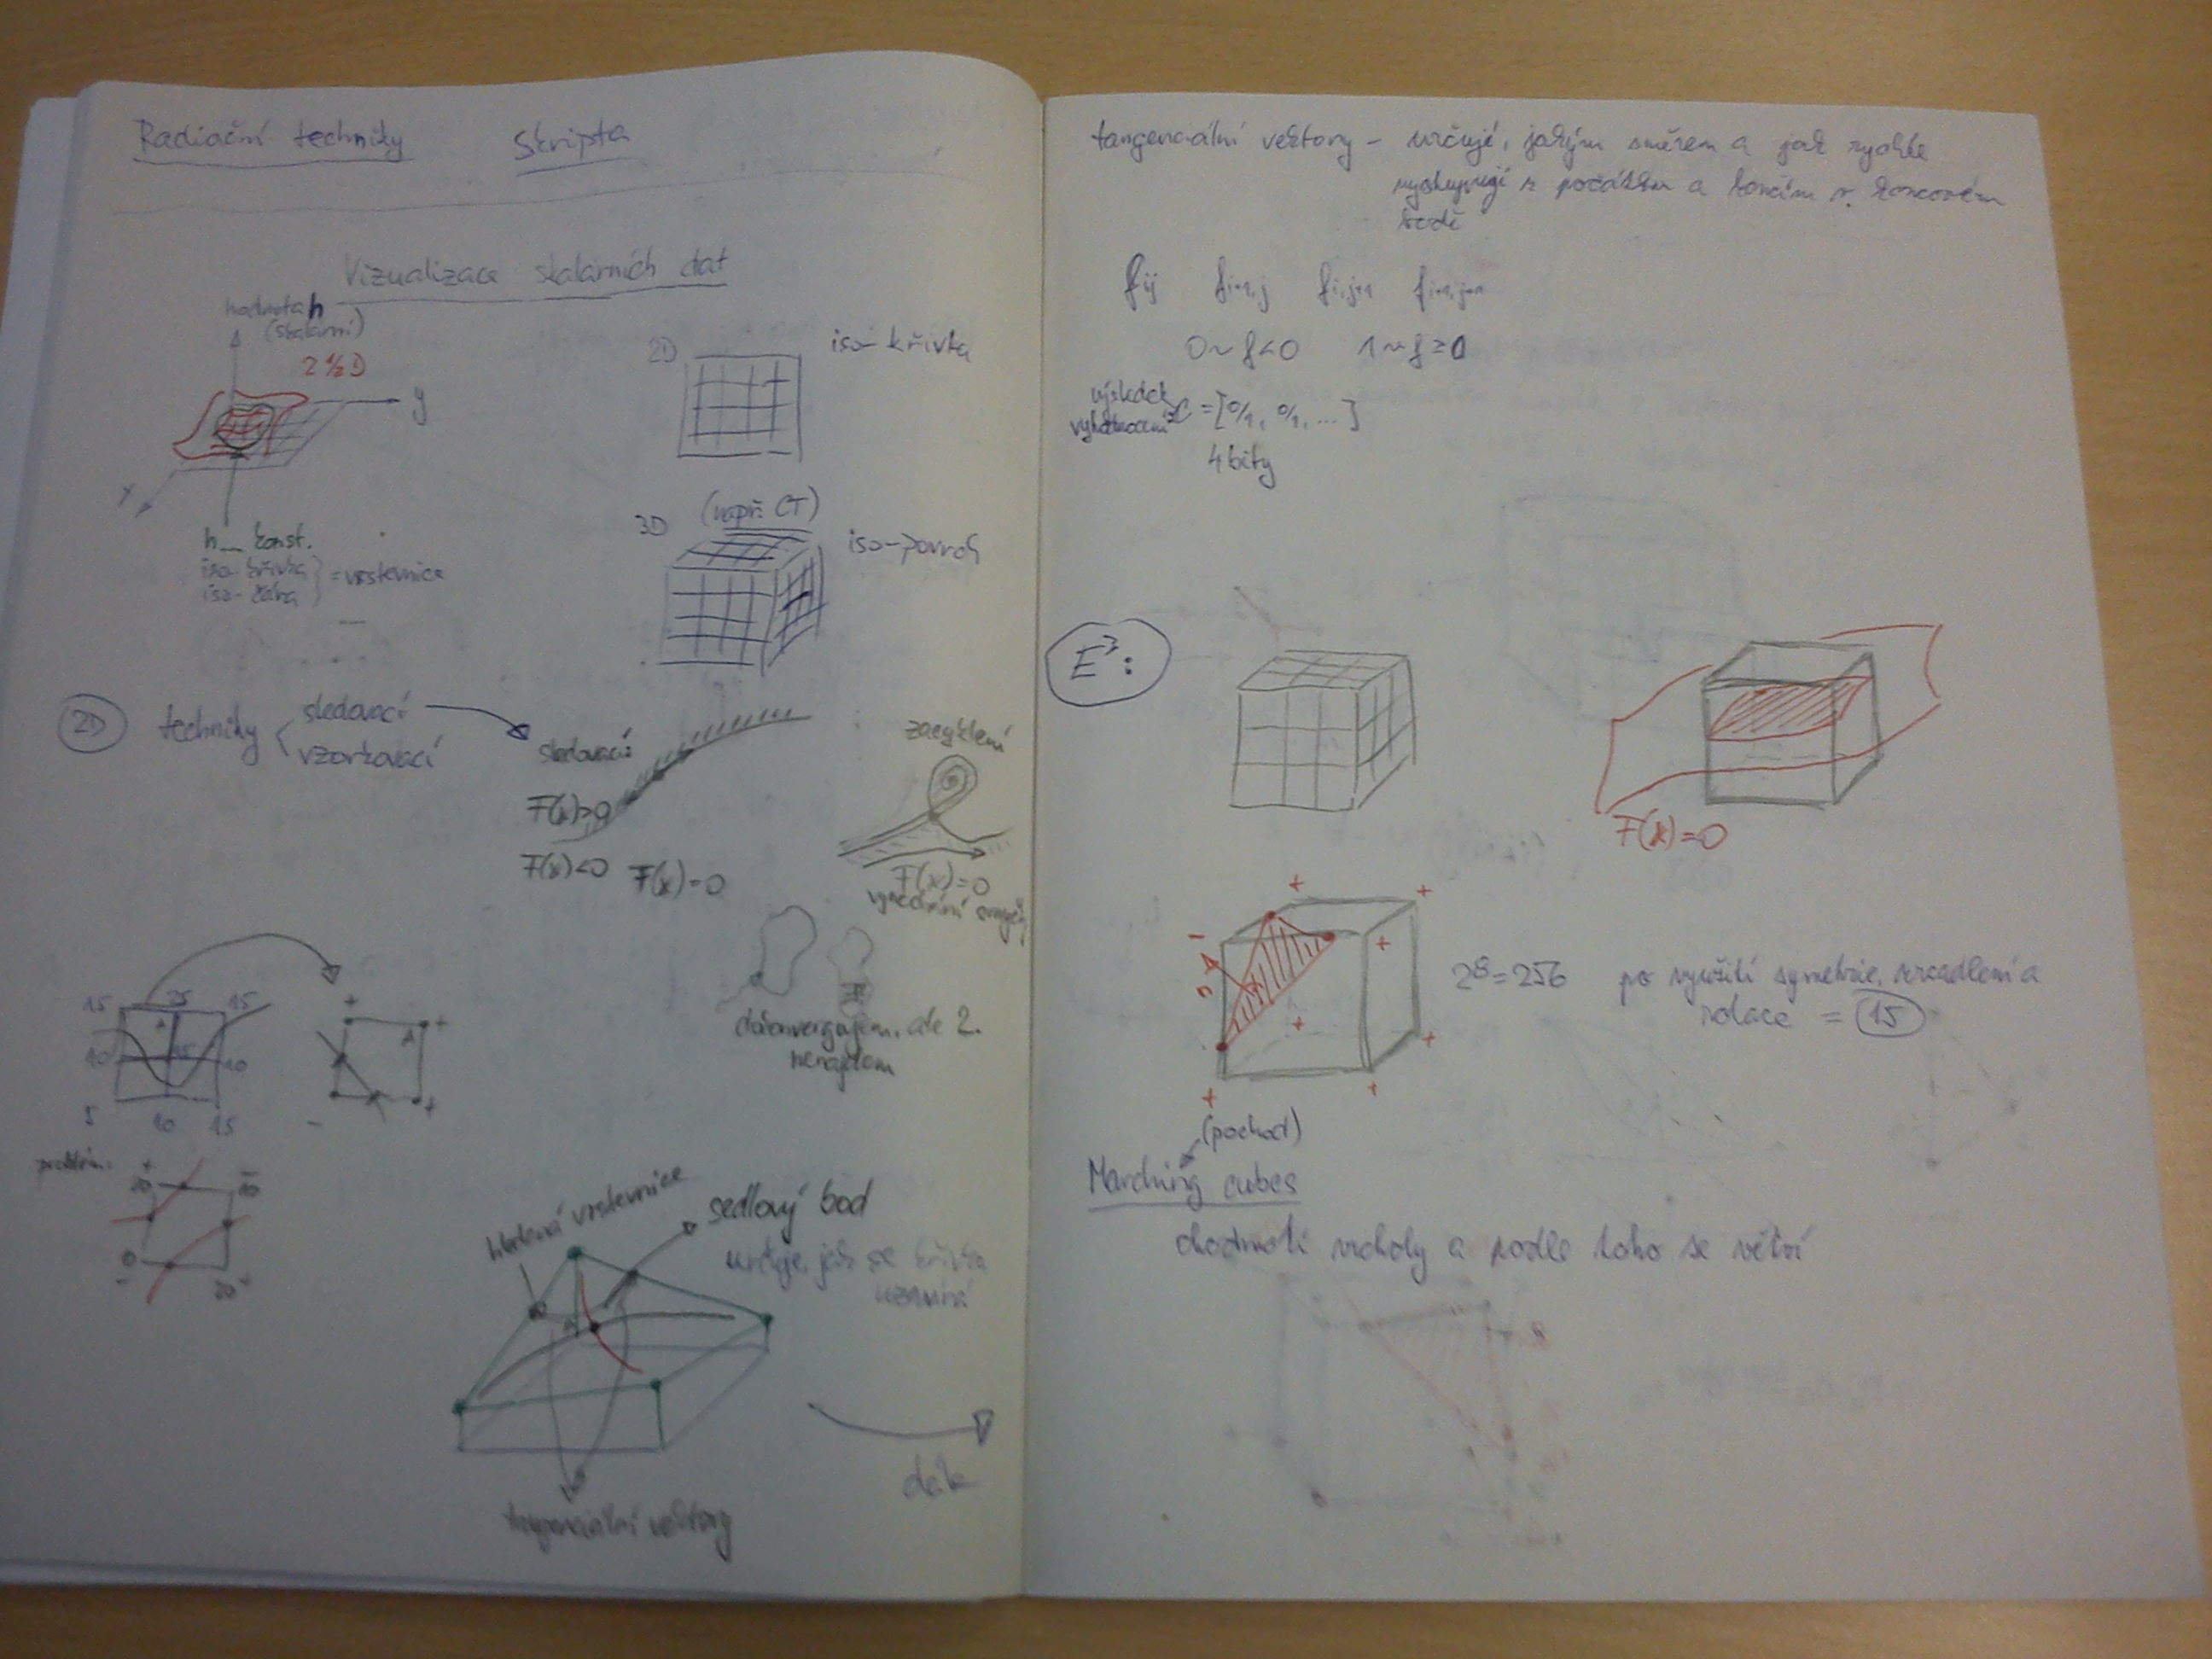 Radiační techniky Skripta
Vizualizace skalárních dat
hodnota h
(skalární)
2 1/2 D
y
x
h__ konst.
iso-křivka
iso-čára } = vrstevnice
2D iso-křivka
3D (např. CT) iso-povrch
2D techniky sledovací
vzorkovací
sledovací:
F(x)>0
F(x)<0 F(x)=0
zacyklení
F(x)=0
dokonvergujem, ale 2.
nenajdem
15 25 15
A
10 15 10
5 10 15
+ +
A
- +
problém:
+ -
20 10
0 20
- +
hledaná vrstevnice
sedlový bod
určuje, jak se křivka
uzavírá
A
tangenciální vektory
dál
tangenciální vektory - určují, jakým směrem a jak rychle
vystupuji z počátku a končím v koncovém
bodě
fij fi+1,j fi,j+1 fi+1,j+1
0 ~ f<0 1 ~ f≥0
výsledek
vyhodnocení C = [0/1, 0/1, ...]
4 bity
E³:
F(x)=0
+ +
- +
+ +
+ +
2⁸=256 po využití symetrie, zrcadlení a
rotace = 15
(pochod)
Marching cubes
ohodnotí vrcholy a podle toho se větví